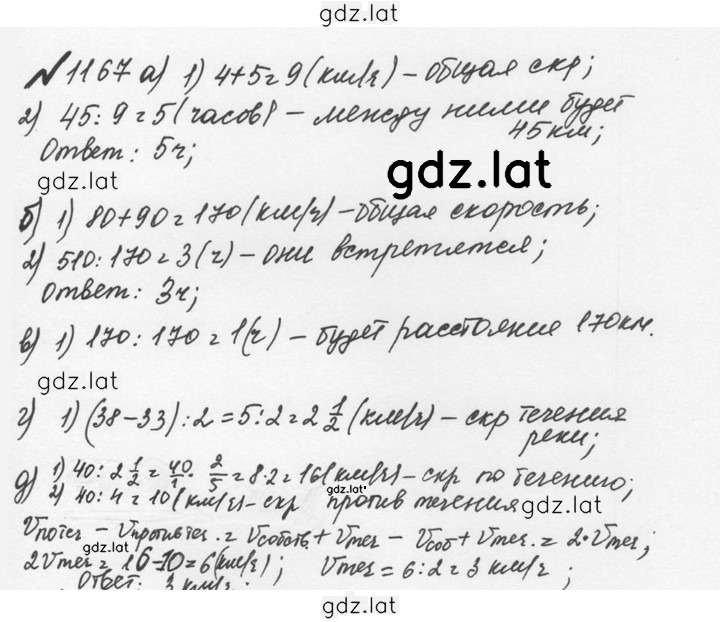 gdz.lat
№1167 а) 1) 4+5=9 (км/ч) – общая скр;
2) 45:9=5 (часов) – между ними будет
45 км;
Ответ: 5ч;
gdz.lat
gdz.lat
б) 1) 80+90=170 (км/ч) – общая скорость;
2) 510:170=3 (ч) – они встретятся;
Ответ: 3ч;
в) 1) 170:170=1 (ч) – будет расстояние 170км.
gdz.lat
г) 1) (38-33):2=5:2=2 1/2 (км/ч) – скр течения
реки;
д) 1) 40: 2 1/2 = 40/1 · 2/5 = 8·2=16 (км/ч) – скр по течению;
2) 40:4=10 (км/ч) – скр против течения
gdz.lat
Vпотеч – Vпротивтеч. = Vсобств + Vтеч – Vсоб + Vтеч. = 2·Vтеч;
2Vтеч = 16-10=6 (км/ч); Vтеч = 6:2=3 км/ч;
gdz.lat
Ответ: 3 км/ч;
gdz.lat